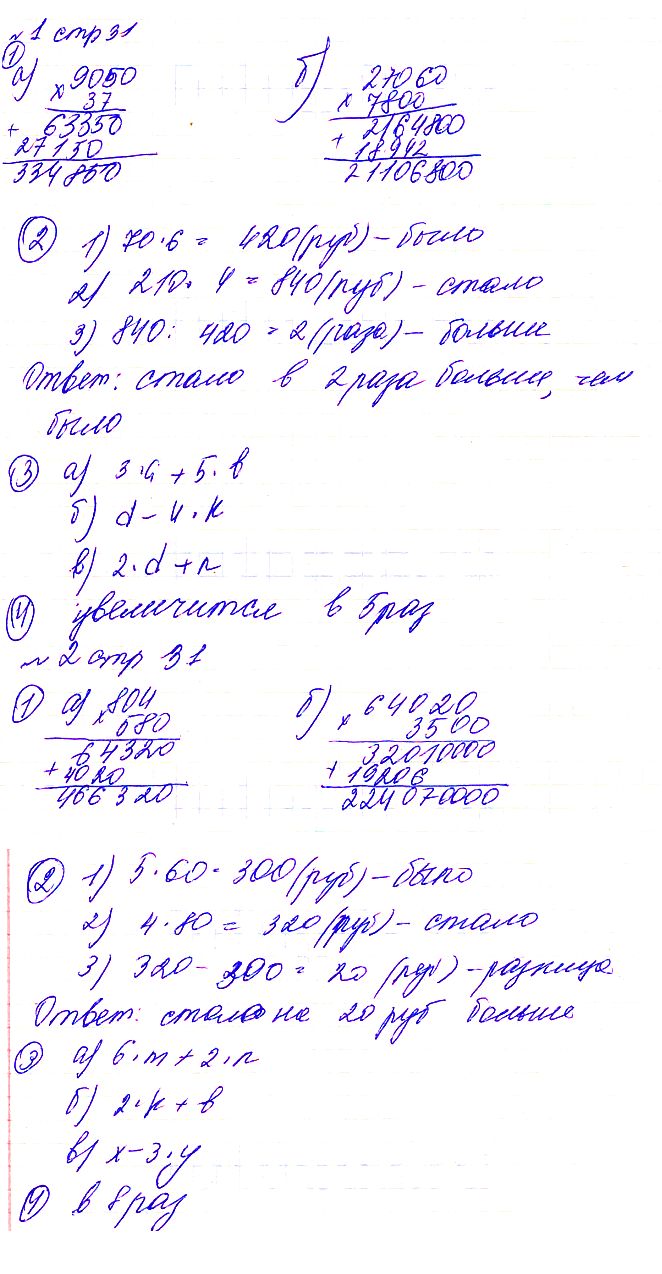 №1 стр 31
① а) 9050 б) 27060
× 37 × 7800
+ 63350 + 2164800
27150 18942
334850 21106800
② 1) 70·6 = 420(руб) – было
2) 210· 4 = 840(руб) – стало
3) 840: 420 = 2(раза) – больше
Ответ: стало в 2 раза больше, чем
было
③ а) 3·a + 5·в
б) d – 4·k
в) 2·d + n
④ увеличится в 5 раз
№2 стр 31
① а) 804 б) 64020
× 580 × 3500
64320 32010000
+ 4020 + 19206
466320 224070000
② 1) 5·60 = 300(руб) – было
2) 4·80 = 320(руб) – стало
3) 320 – 300 = 20 (руб) – разница
Ответ: стало на 20 руб больше
③ а) 6·m + 2·n
б) 2·k + в
в) x – 3·y
④ в 8 раз